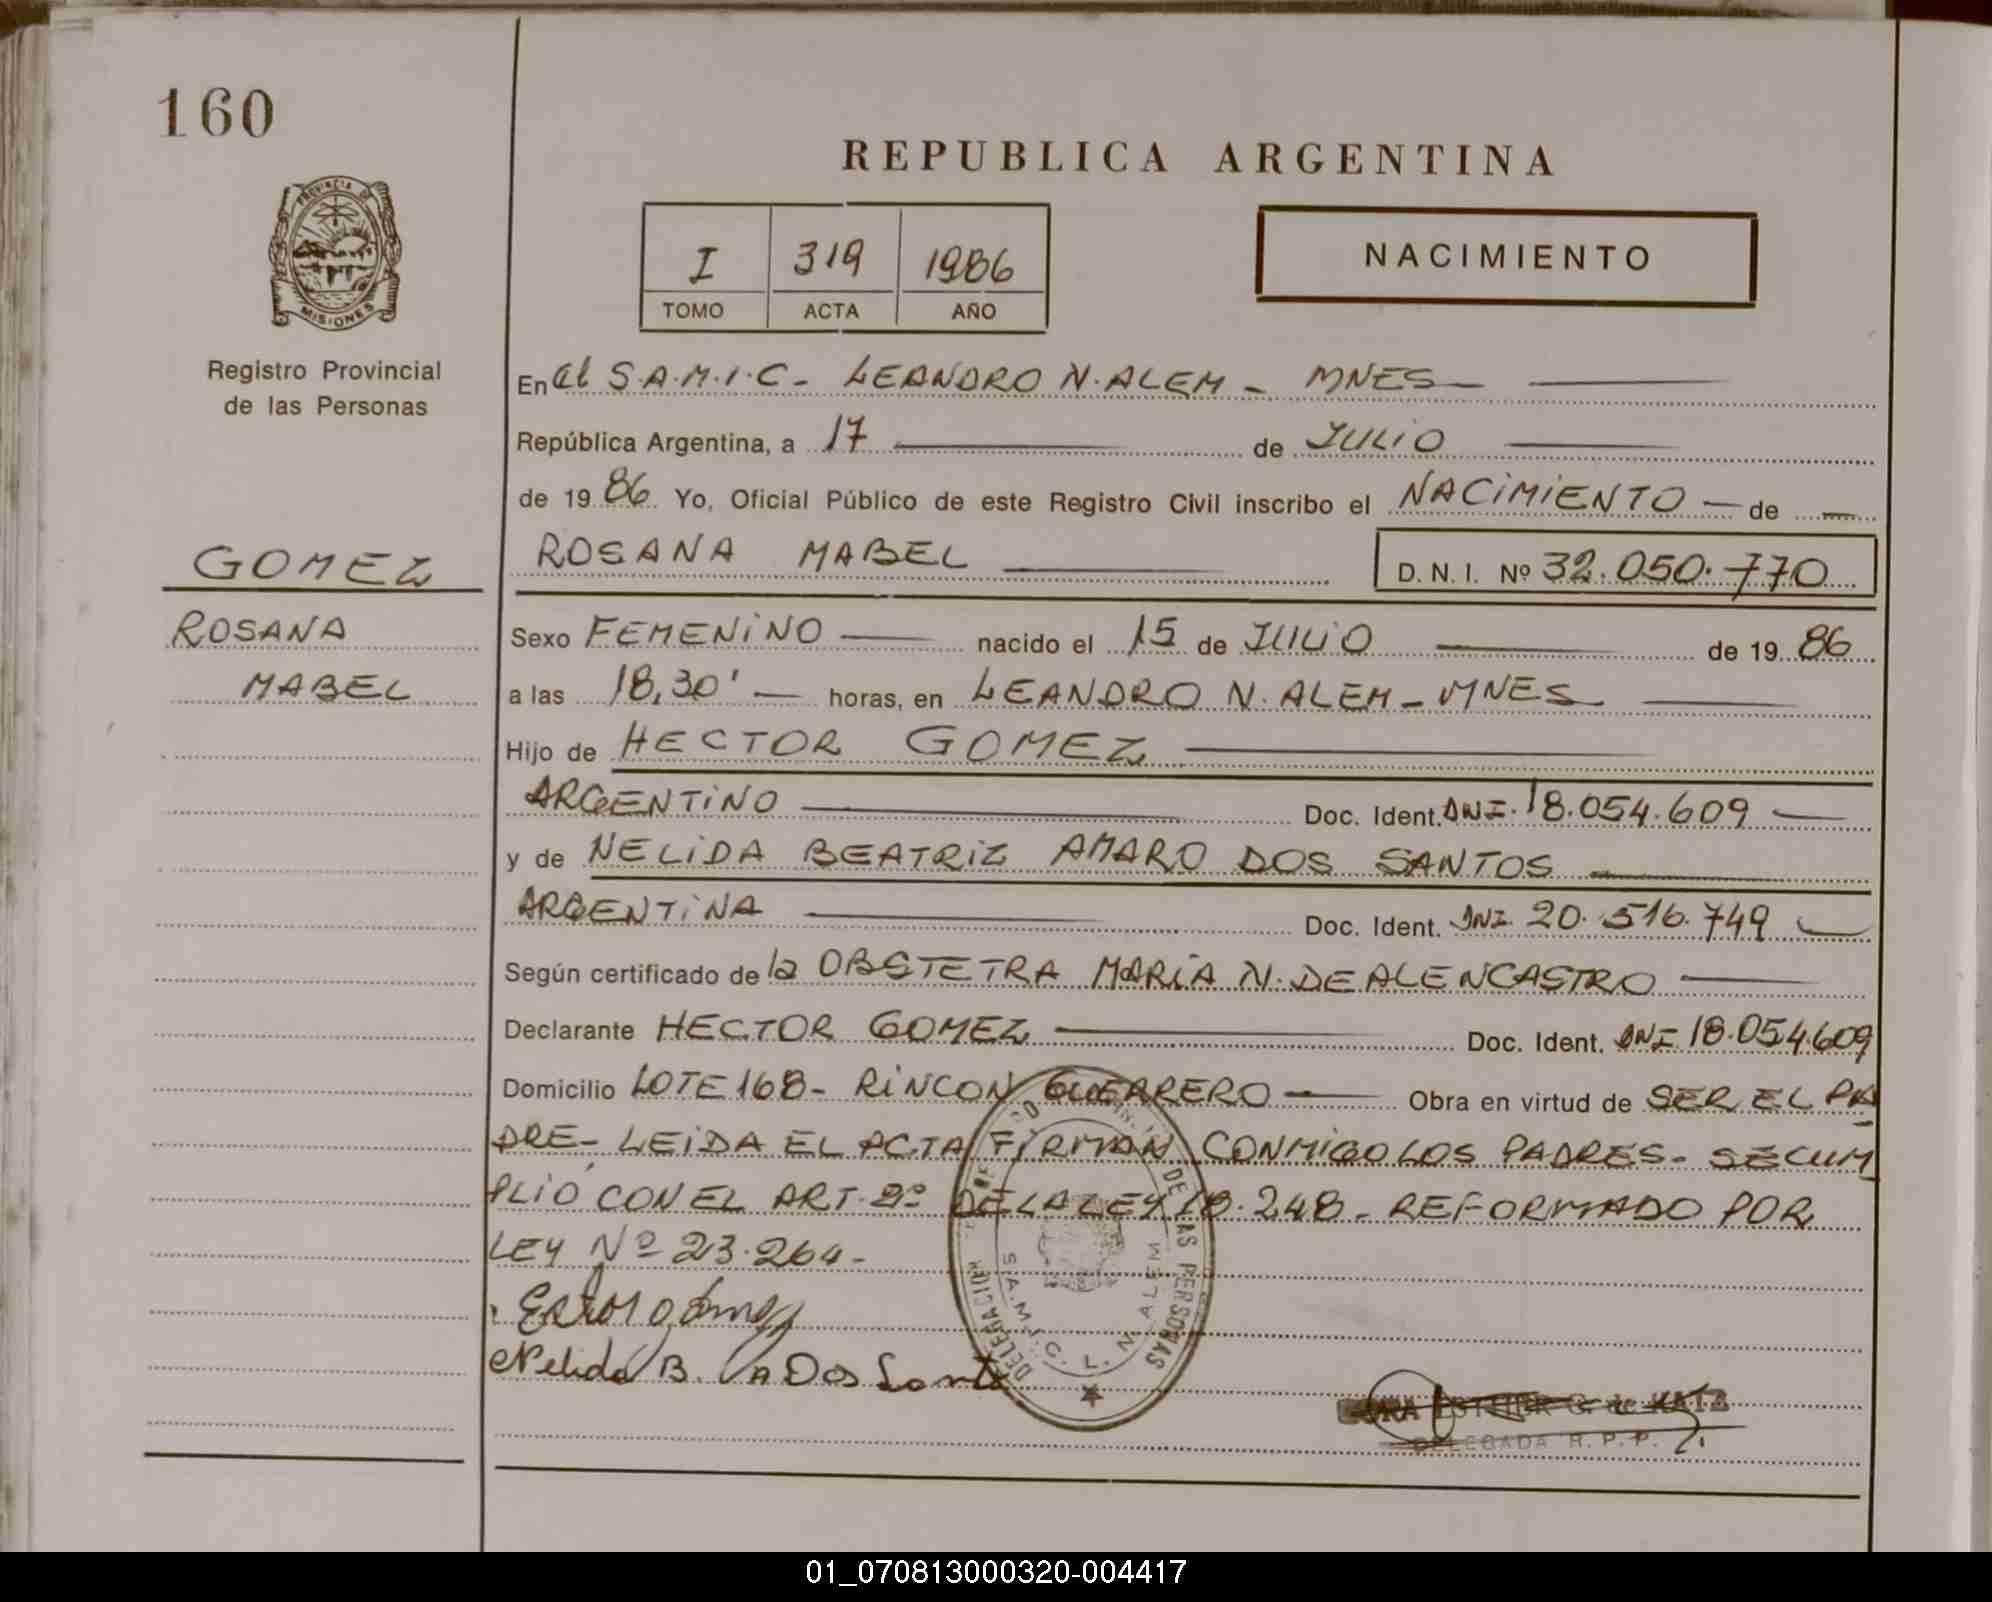 160
REPUBLICA ARGENTINA
PROVINCIA DE
MISIONES
Registro Provincial
de las Personas
I 319 1986
TOMO ACTA AÑO
NACIMIENTO
En el S.A.M.I.C- LEANDRO N. ALEM - MNES -
República Argentina, a 17 de JULIO
de 1986 Yo, Oficial Público de este Registro Civil inscribo el NACIMIENTO - de
GOMEZ
ROSANA MABEL
D. N. I. Nº 32.050.770
ROSANA
MABEL
Sexo FEMENINO nacido el 15 de JULIO de 1986
a las 18,30' horas, en LEANDRO N. ALEM - MNES
Hijo de HECTOR GOMEZ
ARGENTINO Doc. Ident. DNI. 18.054.609
y de NELIDA BEATRIZ AMARO DOS SANTOS
ARGENTINA Doc. Ident. DNI. 20.516.749
Según certificado de la OBSTETRA MARIA N. DE ALENCASTRO
Declarante HECTOR GOMEZ Doc. Ident. DNI 18.054.609
Domicilio LOTE 168- RINCON GUERRERO Obra en virtud de SER EL PA
DRE- LEIDA EL ACTA FIRMAN CONMIGO LOS PADRES- SE CUM
PLIÓ CON EL ART. 2º DE LA LEY 18.248- REFORMADO POR
LEY Nº 23.264-
Nelida B. A Dos Santo
DELEGACION
DE LAS PERSONAS
S.A.M.I.C. L. N. ALEM
ESTHER G. de KATZ
DELEGADA R. P. P.
01_070813000320-004417